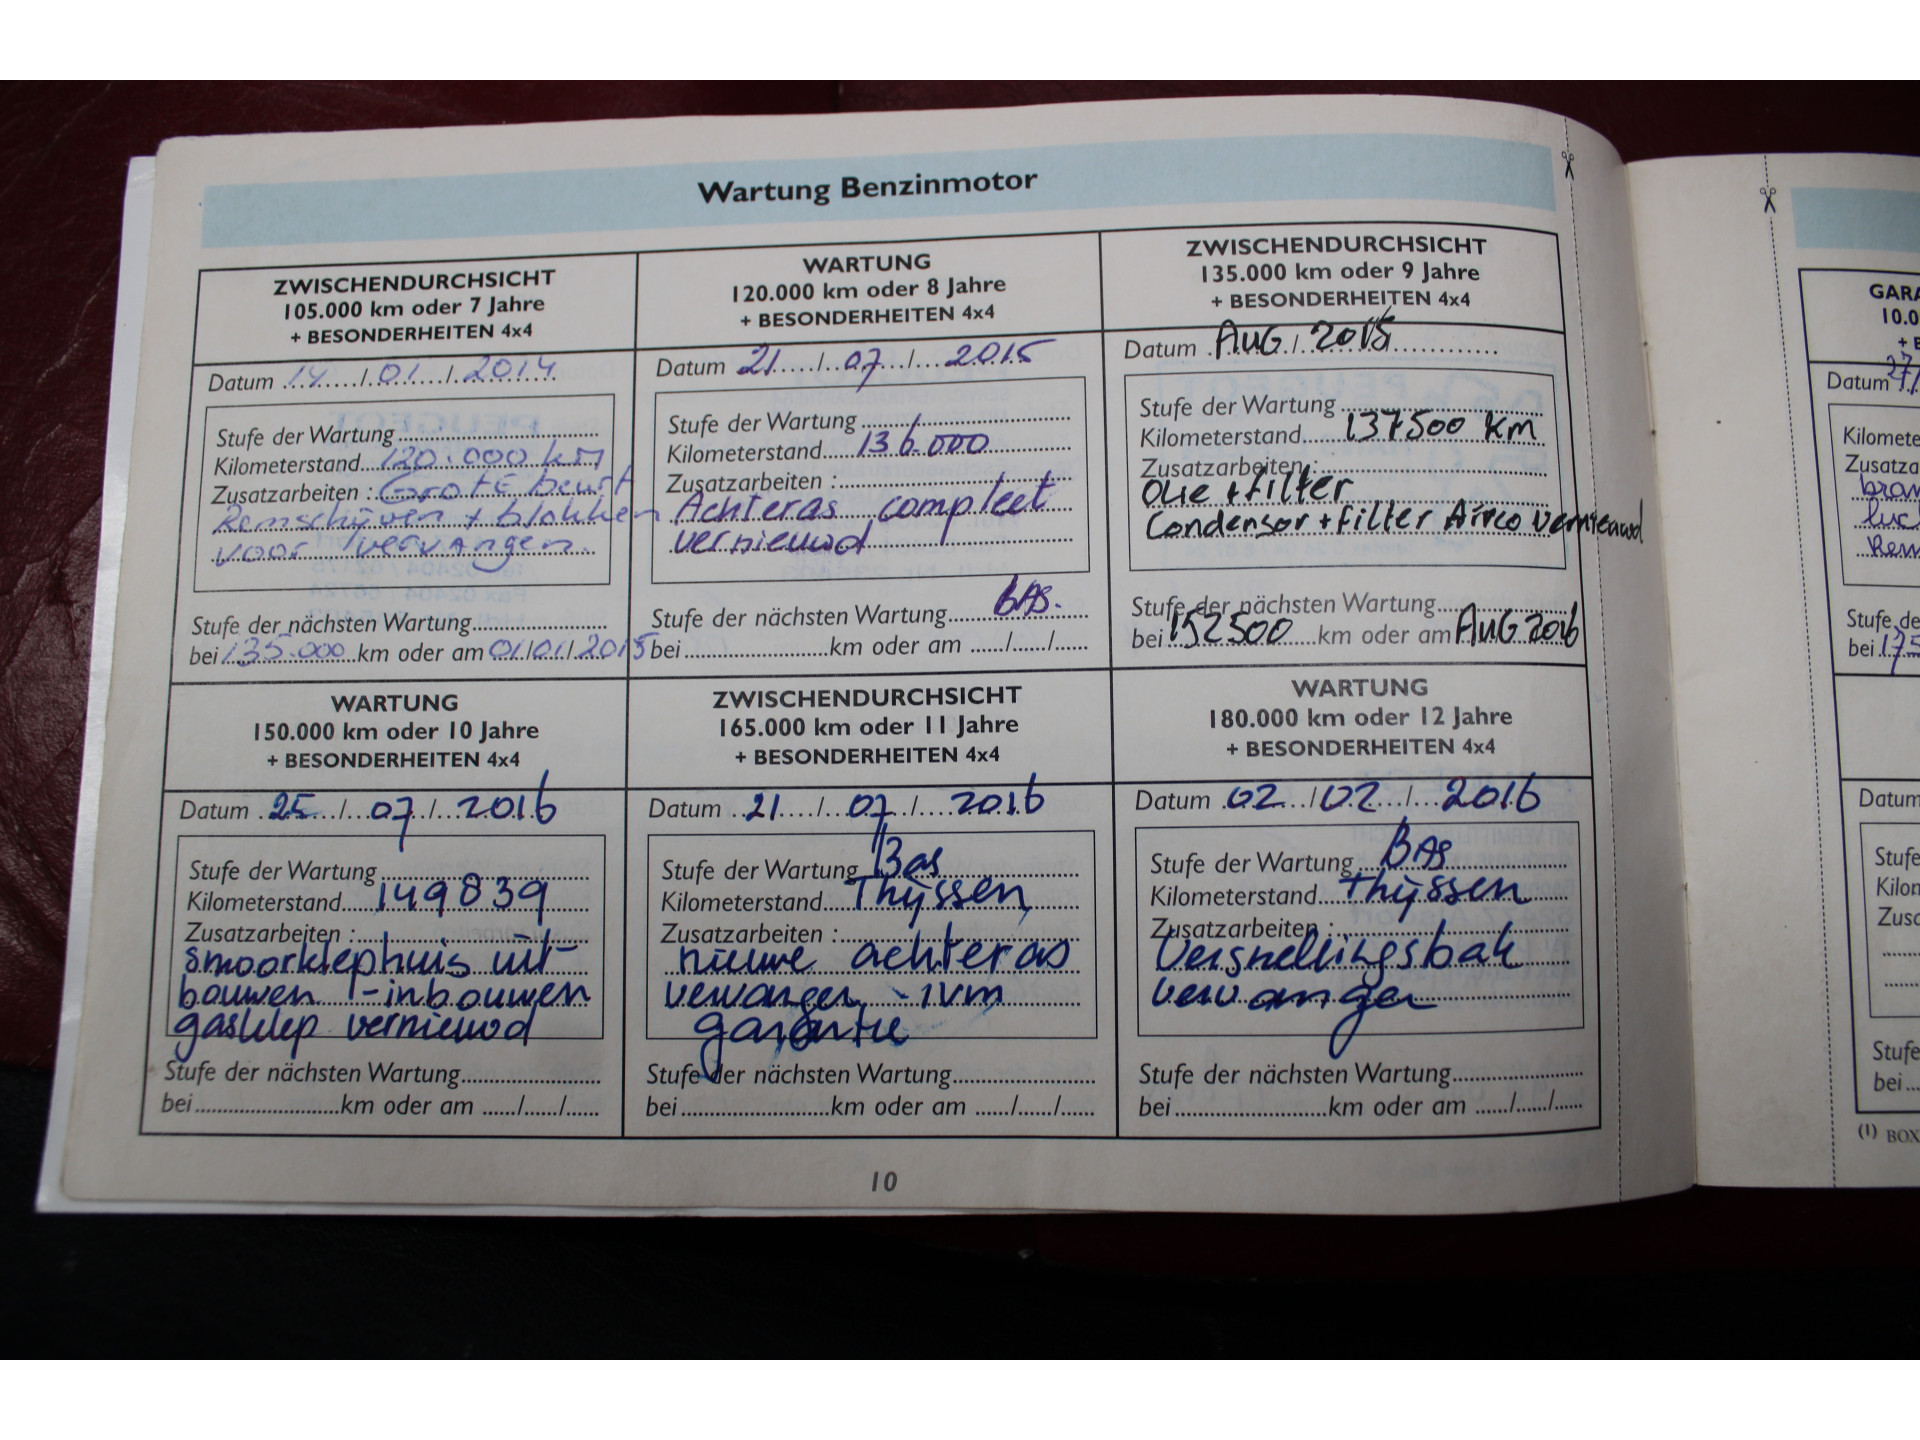 Wartung Benzinmotor
ZWISCHENDURCHSICHT
105.000 km oder 7 Jahre
+ BESONDERHEITEN 4x4
Datum 14/01/2014
Stufe der Wartung
Kilometerstand 120.000 km
Zusatzarbeiten : Grote beurt
Remschijven + blokken
voor vervangen.
Stufe der nächsten Wartung
bei 135.000 km oder am 01/01/2015
WARTUNG
120.000 km oder 8 Jahre
+ BESONDERHEITEN 4x4
Datum 21/07/2015
Stufe der Wartung
Kilometerstand 136.000
Zusatzarbeiten :
Achteras compleet
vernieuwd
Stufe der nächsten Wartung BAS.
bei km oder am / /
ZWISCHENDURCHSICHT
135.000 km oder 9 Jahre
+ BESONDERHEITEN 4x4
Datum AUG / 2015
Stufe der Wartung
Kilometerstand 137500 km
Zusatzarbeiten :
Olie + filter
Condensor + filter Airco vernieuwd
Stufe der nächsten Wartung
bei 152500 km oder am AUG 2016
WARTUNG
150.000 km oder 10 Jahre
+ BESONDERHEITEN 4x4
Datum 25/07/2016
Stufe der Wartung
Kilometerstand 149839
Zusatzarbeiten :
smoorklephuis uit-
bouwen -inbouwen
gasklep vernieuwd
Stufe der nächsten Wartung
bei km oder am / /
ZWISCHENDURCHSICHT
165.000 km oder 11 Jahre
+ BESONDERHEITEN 4x4
Datum 21/07/2016
Stufe der Wartung Bas
Kilometerstand Thijssen
Zusatzarbeiten :
nieuwe achteras
vervangen -ivm
garantie
Stufe der nächsten Wartung
bei km oder am / /
WARTUNG
180.000 km oder 12 Jahre
+ BESONDERHEITEN 4x4
Datum 02/02/2016
Stufe der Wartung BAS
Kilometerstand thijssen
Zusatzarbeiten :
Versnellingsbak
vervangen
Stufe der nächsten Wartung
bei km oder am / /
10
GARA
10.0
+ B
Datum 27/
Kilomete
Zusatza
Rem
Stufe de
bei 175
Datum
Stufe
Kilon
Zusa
Stufe
bei
(1) BOX